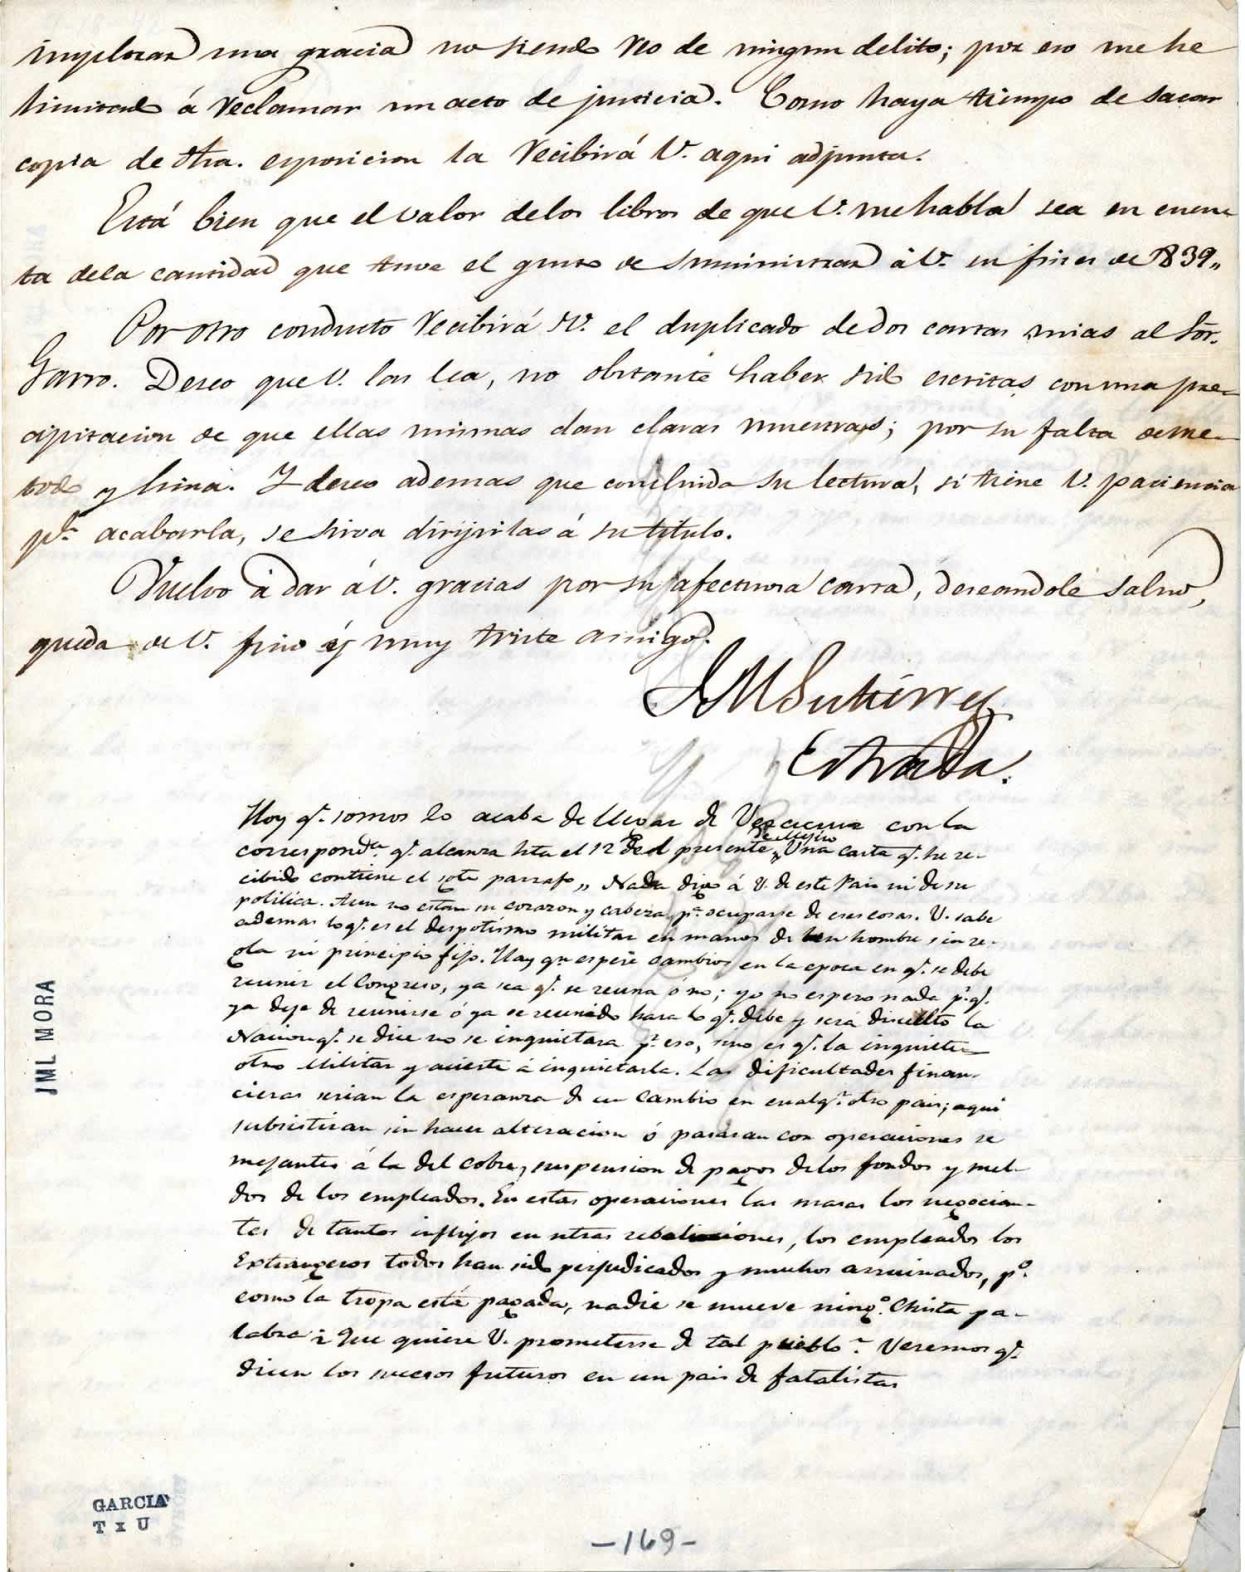 implorar una gracia no siendo reo de ningun delito; por eso me he
limitado á reclamar un acto de justicia. Como haya tiempo de sacar
copia de dha. exposicion la recibirá V. aqui adjunta.
Está bien que el valor delos libros de que V. me habla sea en cuen-
ta dela cantidad que tuve el gusto de suministrar á V. en fines de 1839,,
Por otro conducto recibirá V. el duplicado de dos cartas mias al Sõr.
Garro. Deseo que V. las lea, no obstante haber sido escritas con una pre-
cipitacion de que ellas mismas dan claras muestras; por su falta de me-
todo y lima. Y deseo ademas que concluida su lectura, si tiene V. paciencia
pª. acabarla, se sirva dirijirlas á su titulo.
Vuelvo á dar á V. gracias por su afectuosa carta, deseandole salud,
queda de V. fino y muy triste amigo.
J M Gutierrez
Estrada.
Hoy q. somos 20 acaba de llegar de Veracruz con la
correspondª. q. alcanza hta el 12 del presente,, Una carta de Mejico q. he re-
cibido contiene el sgte parrafo,, Nada digo á V. de este Pais ni de su
politica. Aun no estan su corazon y cabeza pª. ocuparse de esas cosas. V. sabe
ademas lo q. es el despotismo militar en manos de un hombre sin re-
gla ni principio fijo. Hay qn espere cambios en la epoca en q. se debe
reunir el Congreso, ya sea q. se reuna ó no; yo no espero nada p. q.
ya deje de reunirse ó ya se reunido hara lo q. debe y será disuelto la
Nacion q. se dice no se inquietara p. eso, sino es q. la inquiete
otro Militar y acierte á inquietarla. Las dificultades finan-
cieras serian la esperanza de un cambio en cualq. otro pais; aqui
subsistiran sin hacer alteracion ó pasaran con operaciones se
mejantes á la del cobre, suspension de pagos delos fondos y suel-
dos de los empleados. En estas operaciones las masas los negocian-
tes de tantos influjos en ntras reboluciones, los empleados los
Extrangeros todos han sido perjudicados y muchos arruinados, pº.
como la tropa está pagada, nadie se mueve ningº. Chista pa-
labra ¿Que quiere V. prometerse de tal pueblo? Veremos q.
dicen los sucesos futuros en un pais de fatalistas
JML MORA
GARCIA
T x U
-169-